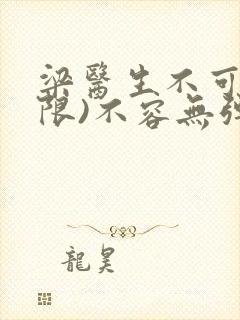 梁醫生不可
限)不容無弹
龍昊